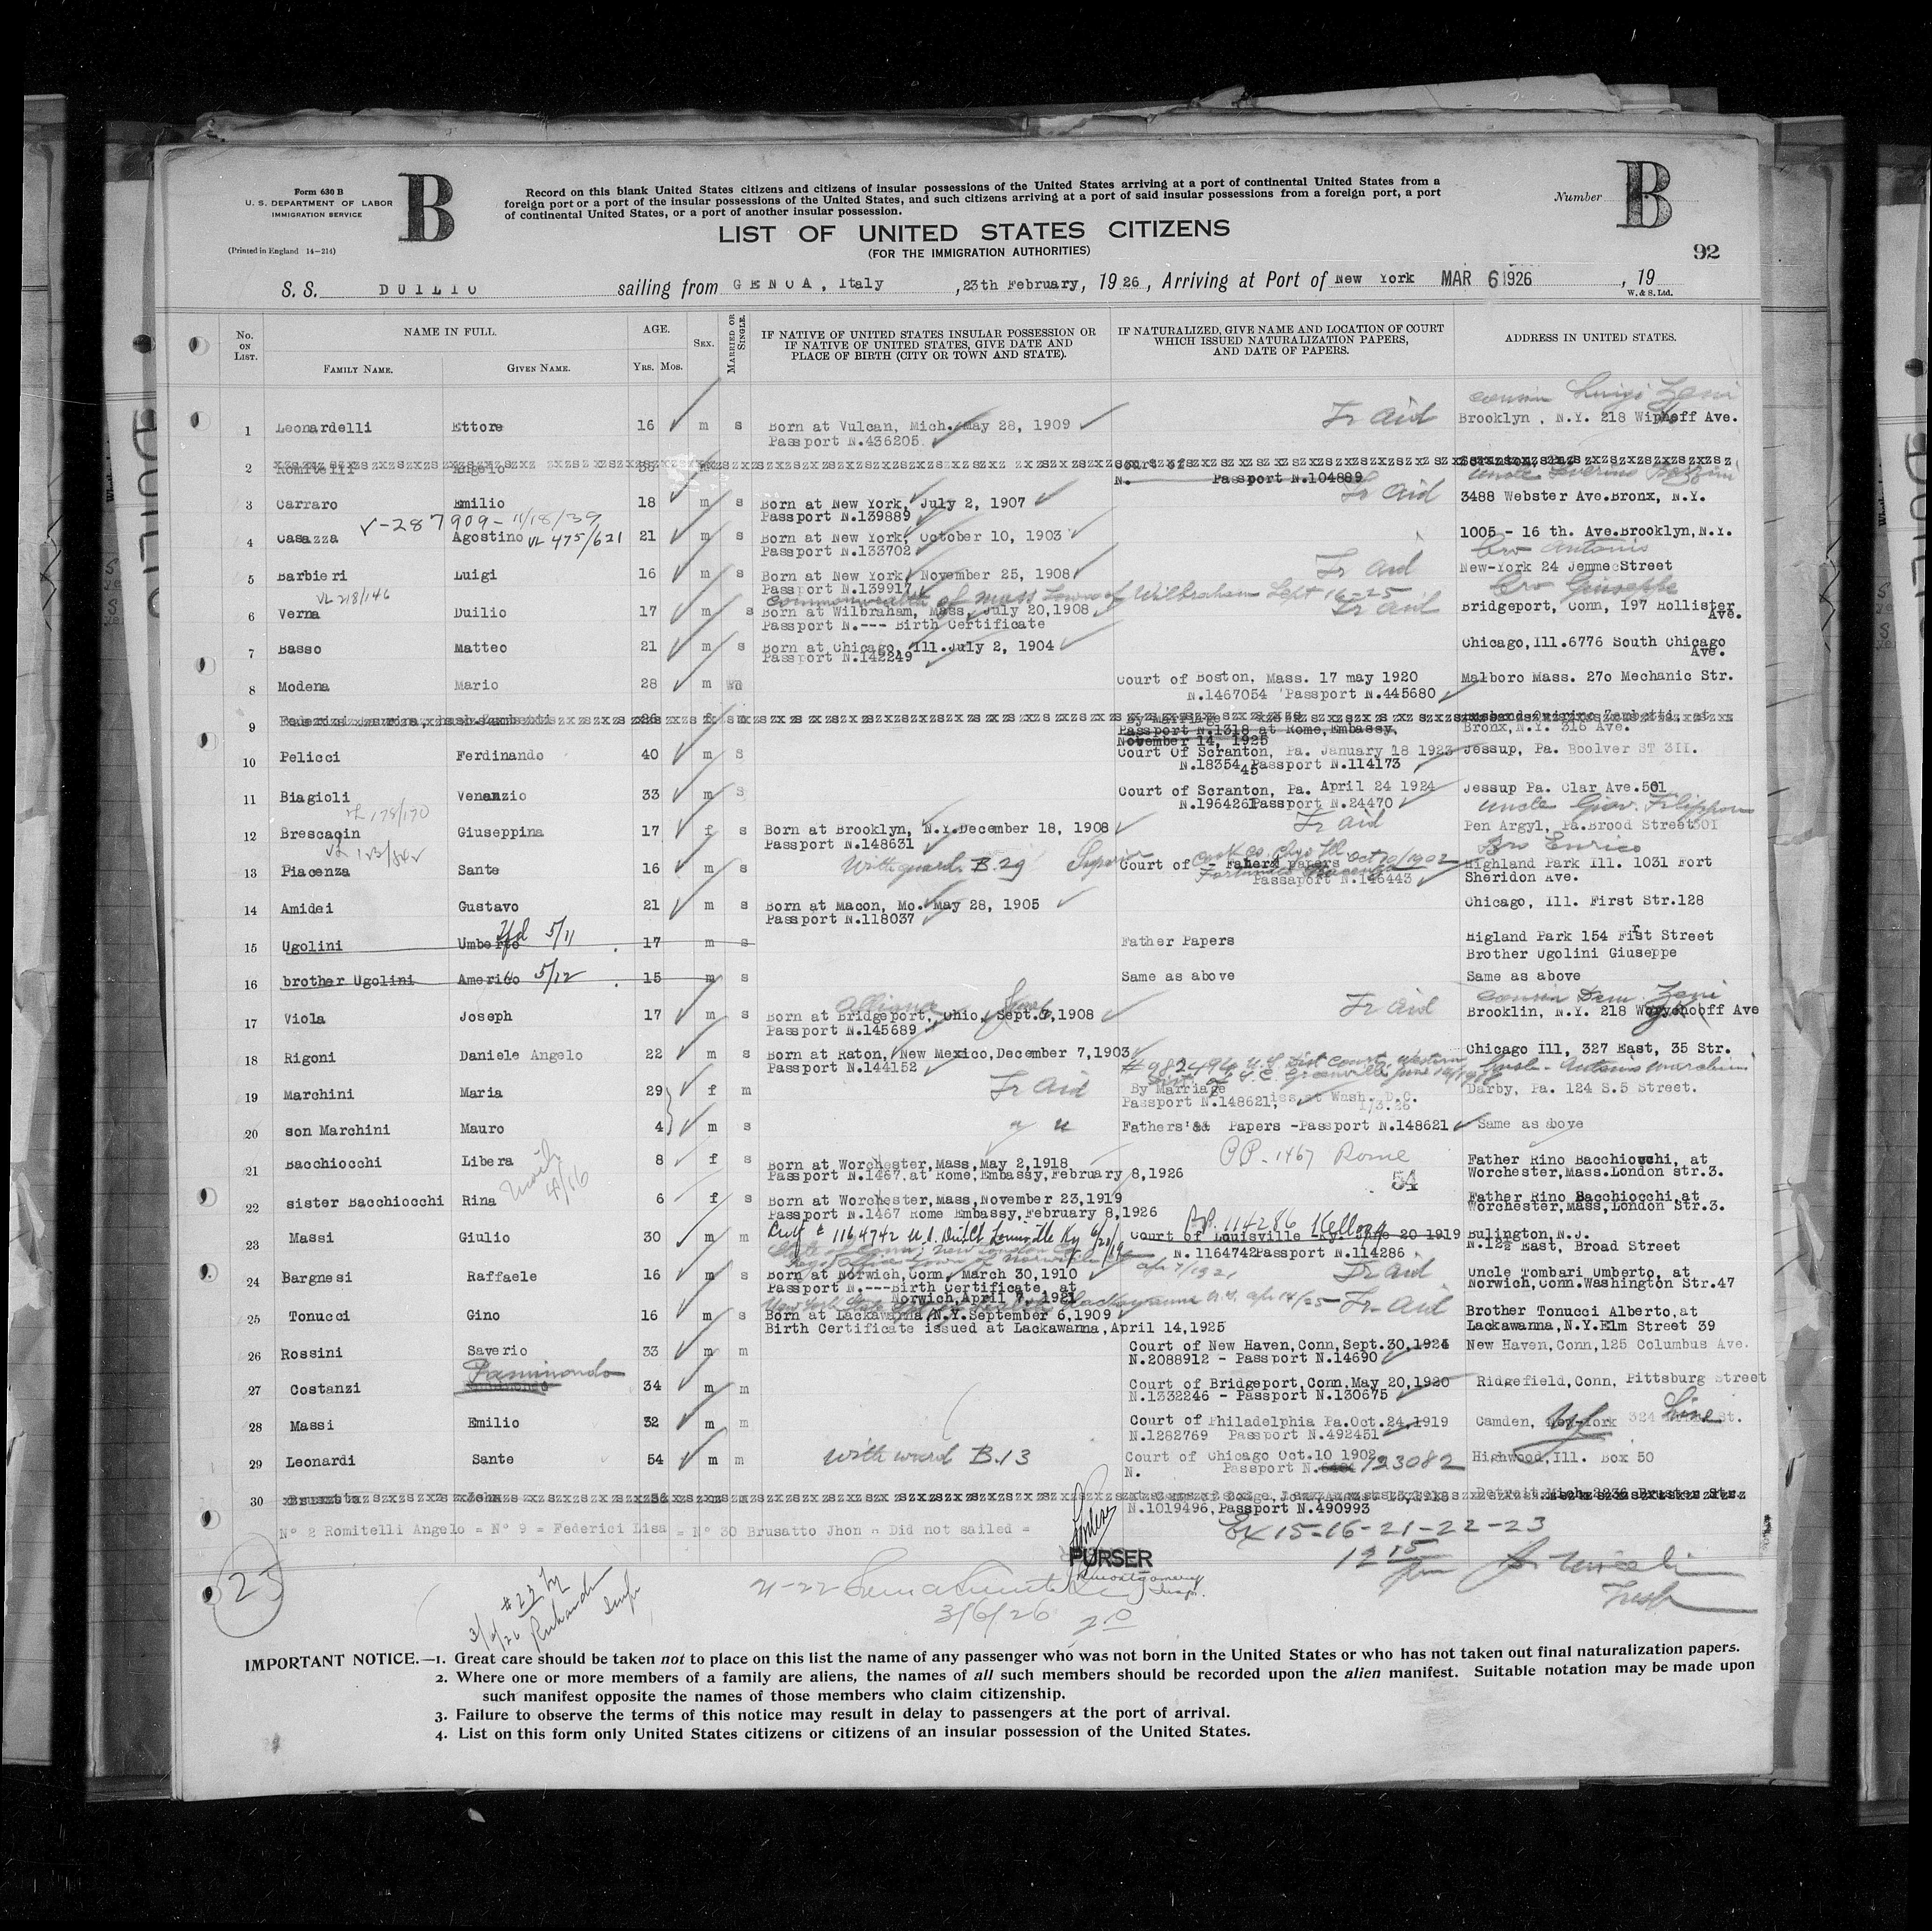 Form 630 B
U. S. DEPARTMENT OF LABOR
IMMIGRATION SERVICE
(Printed in England 14—214)
B
Record on this blank United States citizens and citizens of insular possessions of the United States arriving at a port of continental United States from a
foreign port or a port of the insular possessions of the United States, and such citizens arriving at a port of said insular possessions from a foreign port, a port
of continental United States, or a port of another insular possession.
LIST OF UNITED STATES CITIZENS
(FOR THE IMMIGRATION AUTHORITIES)
Number B
92
S. S. DUILIO sailing from GENOA, Italy, 23th February, 1926, Arriving at Port of New York MAR 6 1926, 19
W. & S. Ltd.
No. ON LIST.
NAME IN FULL.
FAMILY NAME.
GIVEN NAME.
AGE.
YRS. MOS.
SEX.
MARRIED OR SINGLE.
IF NATIVE OF UNITED STATES INSULAR POSSESSION OR
IF NATIVE OF UNITED STATES, GIVE DATE AND
PLACE OF BIRTH (CITY OR TOWN AND STATE).
IF NATURALIZED, GIVE NAME AND LOCATION OF COURT
WHICH ISSUED NATURALIZATION PAPERS,
AND DATE OF PAPERS.
ADDRESS IN UNITED STATES.
cousin Luigi Zeni
1 Leonardelli Ettore 16 m s Born at Vulcan, Mich. May 28, 1909 Tr aid Brooklyn, N.Y. 218 Ave.
Passport N.436205
2 Romitelli Angelo Court of Scranton,
N. Passport N.104889 Uncle
3 Carraro Emilio 18 m s Born at New York, July 2, 1907 Tr aid 3488 Webster Ave.Bronx, N.Y.
Passport N.139889
V-287909-11/18/39
4 Casazza Agostino VL 475/621 21 m s Born at New York, October 10, 1903 1005 - 16 th. Ave.Brooklyn,N.Y.
Passport N.133702 Bro Antonio
5 Barbieri Luigi 16 m s Born at New York November 25, 1908 Tr aid New-York 24 Street
Passport N.139917 Bro Giuseppe
VL 218/146 Commonwealth of Mass Town of Wilbraham Sept 16-25
6 Verna Duilio 17 m s Born at Wilbraham, Mass, July 20,1908 Tr aid Bridgeport, Conn, 197 Hollister
Passport N.--- Birth Certificate Ave.
7 Basso Matteo 21 m s Born at Chicago, Ill.July 2, 1904 Chicago,Ill.6776 South Chicago
Passport N.142249 Ave.
8 Modena Mario 28 m Court of Boston, Mass. 17 may 1920 Malboro Mass. 270 Mechanic Str.
N.1467054 Passport N.445680
9 By Marriage
Passport N.1318 at Rome,Embassy, Bronx,N.Y. 316 Ave.
November 14, 1925
10 Pelicci Ferdinando 40 m s Court Of Scranton, Pa. January 18 1923 Jessup, Pa. Boolver ST 3II.
N.18354 45 Passport N.114173
11 Biagioli Venanzio 33 m s Court of Scranton, Pa. April 24 1924 Jessup Pa. Clar Ave.501
N.1964261Passport N.24470
VL 178/170 Tr aid Uncle Giov. Filippon
12 Brescacin Giuseppina 17 f s Born at Brooklyn, N.Y.December 18, 1908 Pen Argyl, Pa.Brood Street301
Passport N.148631 Bro Enrico
13 Piacenza Sante 16 m s With guard. B.29 Superior Court of Cook Co. Chgo Ill - Fahers papers Oct 10/1902 Highland Park Ill. 1031 Fort
Passaport N.146443 Sheridon Ave.
14 Amidei Gustavo 21 m s Born at Macon, Mo. May 28, 1905 Chicago, Ill. First Str.128
Passport N.118037
15 Ugolini Umberto 5/11 17 m s Father Papers Higland Park 154 First Street
Brother Ugolini Giuseppe
16 brother Ugolini Americo 5/12 15 m s Same as above Same as above
Alliance cousin Dem. Zeni
17 Viola Joseph 17 m s Born at Bridgeport, Ohio, Sept.6,1908 Tr aid Brooklin, N.Y. 218 Ave
Passport N.145689
18 Rigoni Daniele Angelo 22 m s Born at Raton, New Mexico,December 7,1903 Chicago Ill, 327 East, 35 Str.
Passport N.144152 #982494 U.S. Dist Court Western
Dist. of S.C. Greenville June Uncle - Antonio Marchini
19 Marchini Maria 29 f m Tr aid By Marriage Darby, Pa. 124 S.5 Street.
Passport N.148621, ies at Wash. D.C.
1/3.26
20 son Marchini Mauro 4 m s " " Fathers'&& Papers -Passport N.148621 Same as above
21 Bacchiocchi Libera 8 f s Born at Worchester,Mass,May 2,1918 PP. 1467 Rome Father Rino Bacchiocchi, at
Passport N.1467 at Rome,Embassy,February 8,1926 Worchester,Mass.London str.3.
54
22 sister Bacchiocchi Rina 6 f s Born at Worchester,Mass,November 23,1919 Father Rino Bacchiocchi,at
Passport N.1467 Rome Embassy,February 8,1926 Worchester,Mass,London Str.3.
Ctf # 1164742 U.S. Dist Ct Louisville Ky 6/20/19 PP. 114286 Kellogg
23 Massi Giulio 30 m m Court of Louisville -Ky. June 20 1919 Bulington,N.J.
N. 1164742Passport N.114286 N.12½ East, Broad Street
State of Conn; New London Co.
24 Bargnesi Raffaele 16 m s Born at Norwich,Conn, March 30,1910 apr 7/1921 Tr aid Uncle Tombari Umberto, at
Passport N.---Birth Certificate, at Norwich,Conn.Washington Str.47
Norwich,April 7, 1921
New York State Lackawanna N.Y. apr 14/25- Tr. aid
25 Tonucci Gino 16 m s Born at Lackawanna,N.Y.September 6,1909 Brother Tonucci Alberto,at
Birth Certificate issued at Lackawanna,April 14,1925 Lackawanna,N.Y.Elm Street 39
26 Rossini Saverio 33 m m Court of New Haven,Conn,Sept.30,1924 New Haven,Conn,125 Columbus Ave.
N.2088912 - Passport N.14690
27 Costanzi 34 m m Court of Bridgeport,Conn,May 20,1920 Ridgefield,Conn, Pittsburg Street
N.1332246 - Passport N.130675
28 Massi Emilio 32 m m Court of Philadelphia Pa.Oct.24,1919 Camden, New-York 324 Line St.
N.1282769 Passport N.492451
29 Leonardi Sante 54 m m With ward B.13 Court of Chicago Oct.10 1902 Highwood,Ill. Box 50
N. Passport N. 123082
30 Brusatto John
N.1019496,Passport N.490993
N° 2 Romitelli Angelo = N° 9 = Federici Lisa = N° 30 Brusatto Jhon = Did not sailed =
PURSER
Ex 15-16-21-22-23
12 15
pm
25
#23 by
3/6/26 Insp
21-22
3/6/26
Insp.
IMPORTANT NOTICE.—1. Great care should be taken not to place on this list the name of any passenger who was not born in the United States or who has not taken out final naturalization papers.
2. Where one or more members of a family are aliens, the names of all such members should be recorded upon the alien manifest. Suitable notation may be made upon
such manifest opposite the names of those members who claim citizenship.
3. Failure to observe the terms of this notice may result in delay to passengers at the port of arrival.
4. List on this form only United States citizens or citizens of an insular possession of the United States.